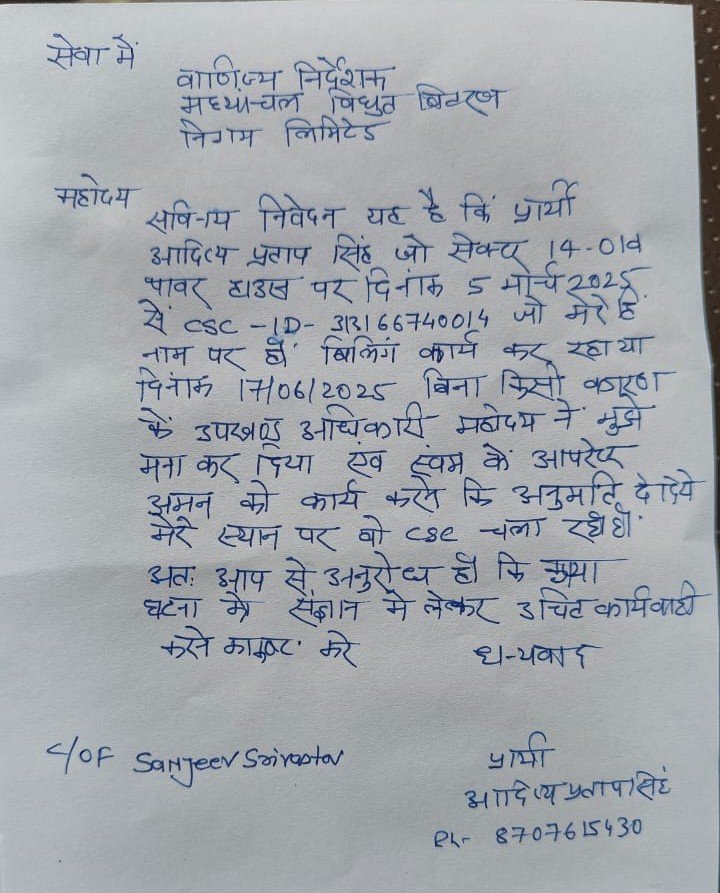 सेवा में
वाणिज्य निर्देशक
मध्यांचल विधुत वितरण
निगम लिमिटेड
महोदय
सविनय निवेदन यह है कि प्रार्थी
आदित्य प्रताप सिंह जो सेक्टर 14-old
पावर हाउस पर दिनांक 5 मार्च 2025
से CSC -ID- 313166740014 जो मेरे हि
नाम पर हैं बिलिंग कार्य कर रहा था
दिनांक 17/06/2025 बिना किसी कारण
के उपखण्ड अधिकारी महोदय ने मुझे
मना कर दिया एंव स्वंम के आपरेटर
अमन को कार्य करने कि अनुमति दे दिये
मेरे स्थान पर वो CSC चला रहे हैं.
अतः आप से अनुरोध हैं कि कृप्या
घटना को संज्ञान मे लेकर उचित कार्यवाही
करने का कष्ट. करे धन्यवाद
C/OF Sanjeev Srivastav
प्रार्थी
आदित्य प्रताप सिंह
Ph- 8707615430